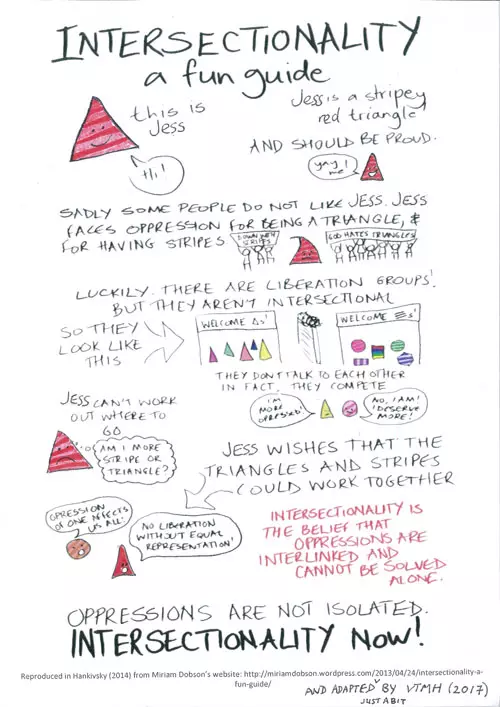 INTERSECTIONALITY
a fun guide
this is
Jess
Hi!
Jess is a stripey
red triangle
AND SHOULD BE PROUD.
yay!
me!
SADLY SOME PEOPLE DO NOT LIKE JESS. JESS
FACES OPPRESSION FOR BEING A TRIANGLE, &
FOR HAVING STRIPES
DOWN WITH
STRIPES
GOD HATES TRIANGLES
LUCKILY, THERE ARE LIBERATION GROUPS!
BUT THEY AREN'T INTERSECTIONAL
SO THEY
LOOK LIKE
THIS
WELCOME Δs!
WELCOME ≡s!
THEY DON'T TALK TO EACH OTHER
IN FACT, THEY COMPETE
I'M
MORE
OPPRESSED!
NO, I AM!
I DESERVE
MORE!
JESS CAN'T WORK
OUT WHERE TO
GO
AM I MORE
STRIPE OR
TRIANGLE?
JESS WISHES THAT THE
TRIANGLES AND STRIPES
COULD WORK TOGETHER
OPRESSION
of ONE AFFECTS
US ALL!
NO LIBERATION
WITHOUT EQUAL
REPRESENTATION!
INTERSECTIONALITY IS
THE BELIEF THAT
OPPRESSIONS ARE
INTERLINKED AND
CANNOT BE SOLVED
ALONE.
OPPRESSIONS ARE NOT ISOLATED.
INTERSECTIONALITY NOW!
Reproduced in Hankivsky (2014) from Miriam Dobson's website: http://miriamdobson.wordpress.com/2013/04/24/intersectionality-a-
fun-guide/
AND ADAPTED BY VTMH (2017)
JUST A BIT